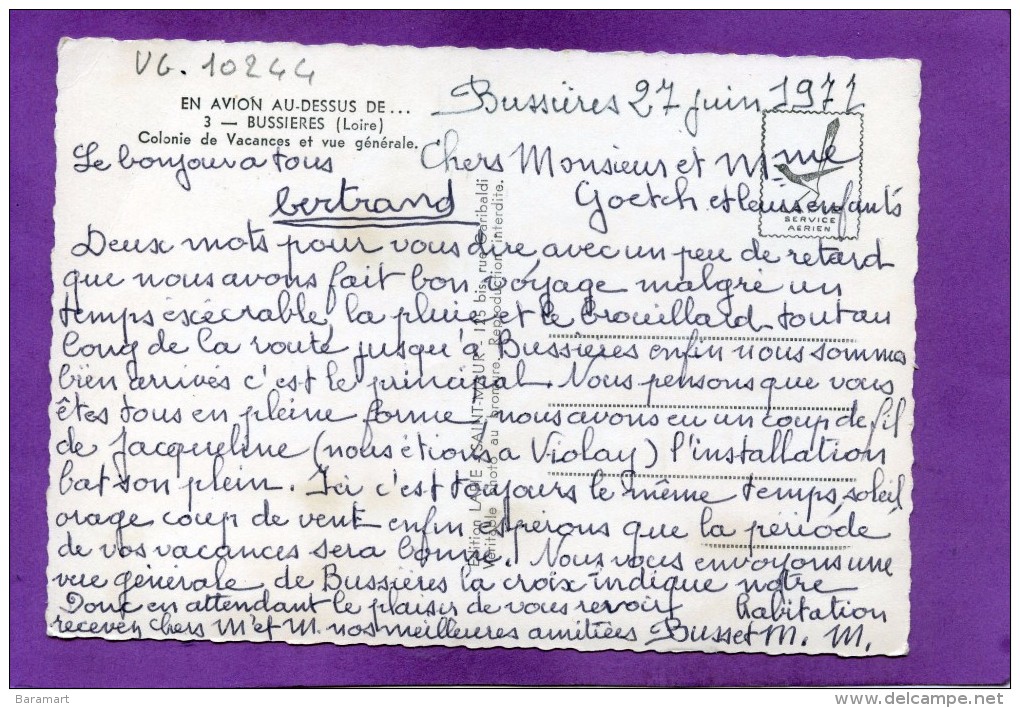 VG. 10244
EN AVION AU-DESSUS DE...
3 — BUSSIERES (Loire)
Colonie de Vacances et vue générale.
Bussières 27 juin 1971
Le bonjour a tous
bertrand
Chers Monsieur et Mme
Goetch et leurs enfants
SERVICE
AERIEN
Deux mots pour vous dire avec un peu de retard
que nous avons fait bon voyage malgré un
temps escécrable, la pluie et le brouillard tout au
long de la route jusqu'à Bussières enfin nous sommes
bien arrivés c'est le principal. Nous pensons que vous
êtes tous en pleine forme, nous avons eu un coup de fil
de Jacqueline (nous étions a Violay) l'installation
bat son plein. Ici c'est toujours le même temps, soleil
orage coup de vent enfin espérons que la période
de vos vacances sera bonne. Nous vous envoyons une
vue générale de Bussières la croix indique notre
habitation
Donc en attendant le plaisir de vous revoir
recevez chers Mr et M. nos meilleures amitiées Busset M. M.
Edition LAPIE SAINT-MAUR 125 bis, rue Garibaldi
Véritable photo au bromure. Reproduction interdite.
Baramart
www.delcampe.net